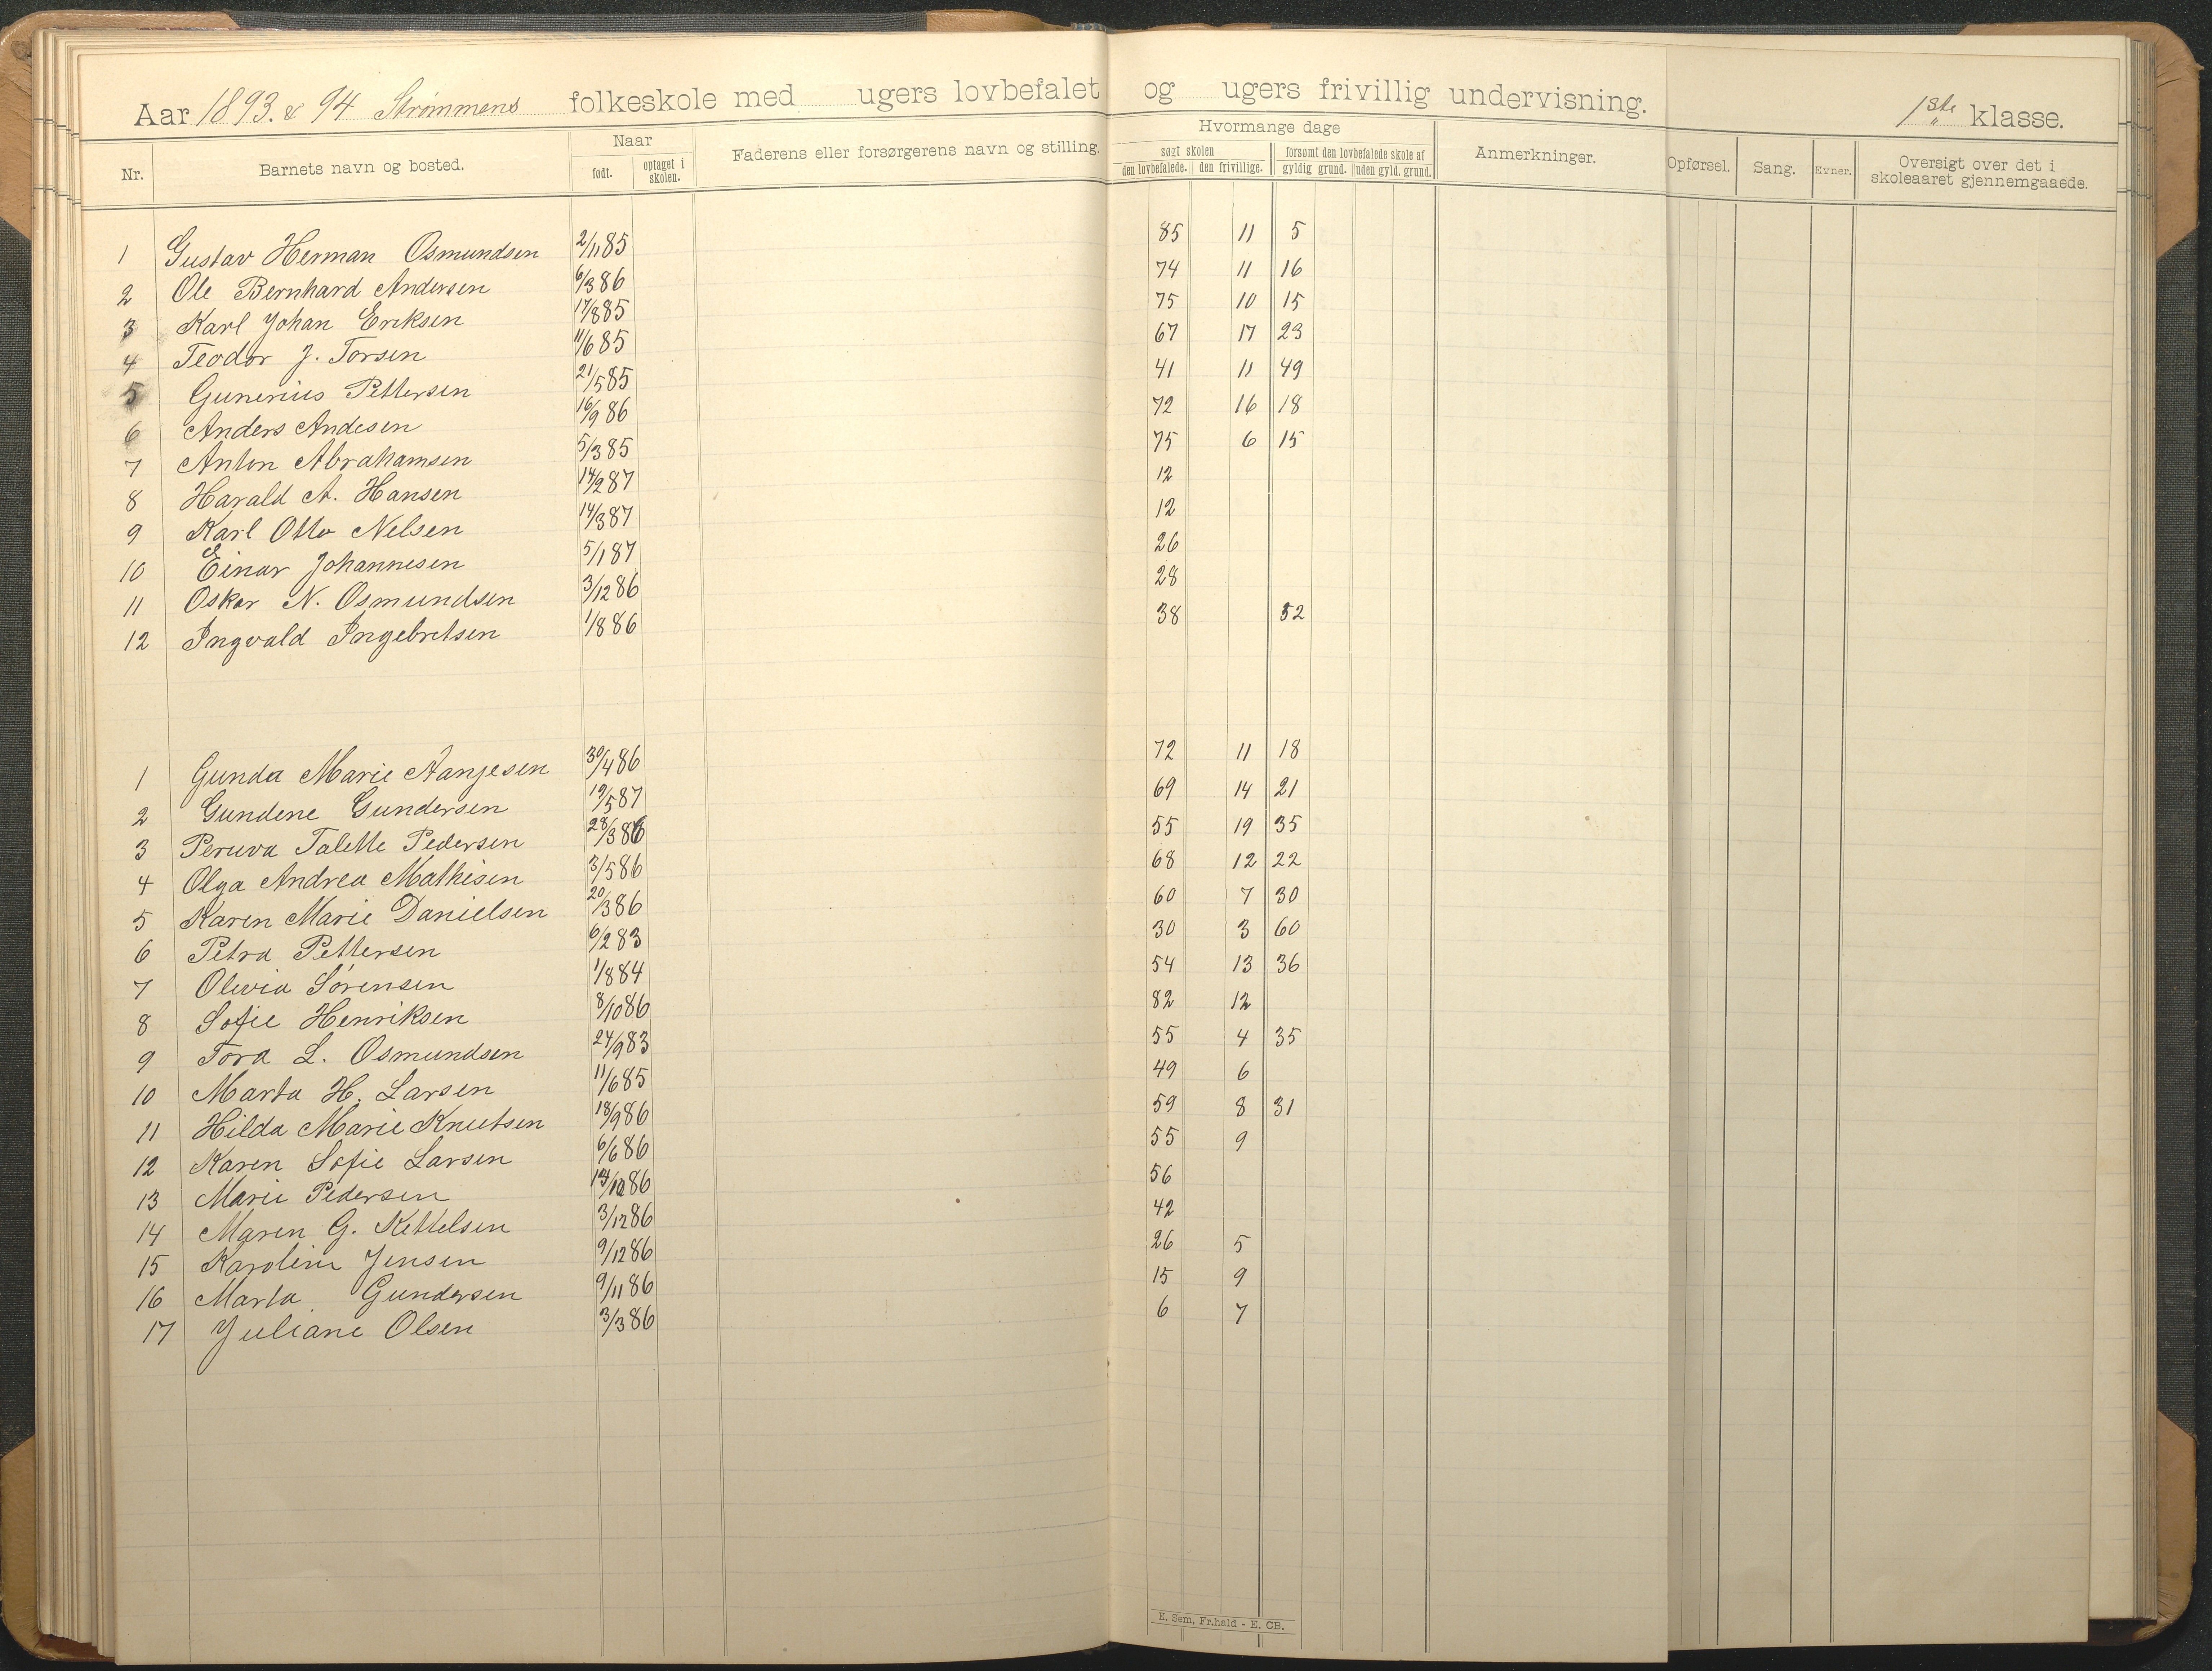 Aar 1893. & 94 Strømmens folkeskole med ugers lovbefalet og ugers frivillig undervisning. 1ste klasse.
Nr. Barnets navn og bosted. Naar født. optaget i skolen. Faderens eller forsørgerens navn og stilling. Hvormange dage søgt skolen den lovbefalede. den frivillige. forsømt den lovbefalede skole af gyldig grund. uden gyld. grund. Anmerkninger. Opførsel. Sang. Evner. Oversigt over det i skoleaaret gjennemgaaede.
1 Gustav Herman Osmundsen 2/11 85 85 11 5
2 Ole Bernhard Andersen 6/3 86 74 11 16
3 Karl Johan Eriksen 17/8 85 75 10 15
4 Teodor J. Torsen 11/6 85 67 17 23
5 Gunerius Pettersen 21/5 85 41 11 49
6 Anders Andesen 16/9 86 72 16 18
7 Anton Abrahamsen 5/3 85 75 6 15
8 Harald A. Hansen 14/2 87 12
9 Karl Otto Nelsen 14/3 87 12
10 Einar Johannesen 5/1 87 26
11 Oskar N. Osmundsen 3/12 86 28
12 Ingvald Ingebretsen 1/8 86 38 52
1 Gunda Marie Aanjesen 30/4 86 72 11 18
2 Gundene Gundersen 19/5 87 69 14 21
3 Peruva Talette Pedersen 28/3 86 55 19 35
4 Olga Andrea Mathisen 3/5 86 68 12 22
5 Karen Marie Danielsen 20/3 86 60 7 30
6 Petra Pettersen 6/2 83 30 3 60
7 Olevia Sørensen 1/8 84 54 13 36
8 Sofie Henriksen 8/10 86 82 12
9 Tora L. Osmundsen 24/9 83 55 4 35
10 Marta H. Larsen 11/6 85 49 6
11 Hilda Marie Knutsen 18/9 86 59 8 31
12 Karen Sofie Larsen 6/6 86 55 9
13 Marie Pedersen 86 56
14 Maren G. Kettelsen 3/12 86 42
15 Karoline Jensen 9/12 86 26 5
16 Marta Gundersen 9/11 86 15 9
17 Juliane Olsen 3/3 86 6 7
E. Sem, Fr.hald - E. CB.